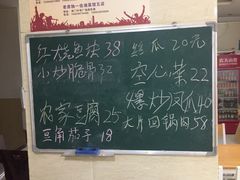 红烧鱼块38
小炒脆骨32
农家豆腐25
豆角茄子18
丝瓜20元
空心菜22
爆炒凤爪40
大片回锅肉58